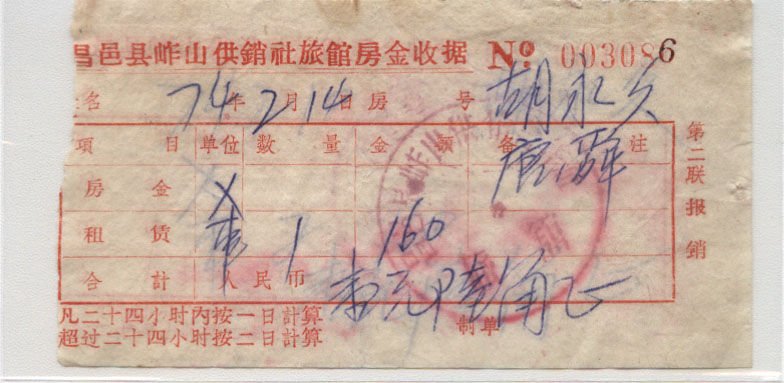 昌邑县岞山供銷社旅館房金收据 No 003086
名 74年2月14日 房号 胡永久
項目 单位 数量 金額 备注
房金
租赁 1 160
合計 人民币 壹元陸角正
凡二十四小时內按一日計算
超过二十四小时按二日計算
制单
第二联报銷